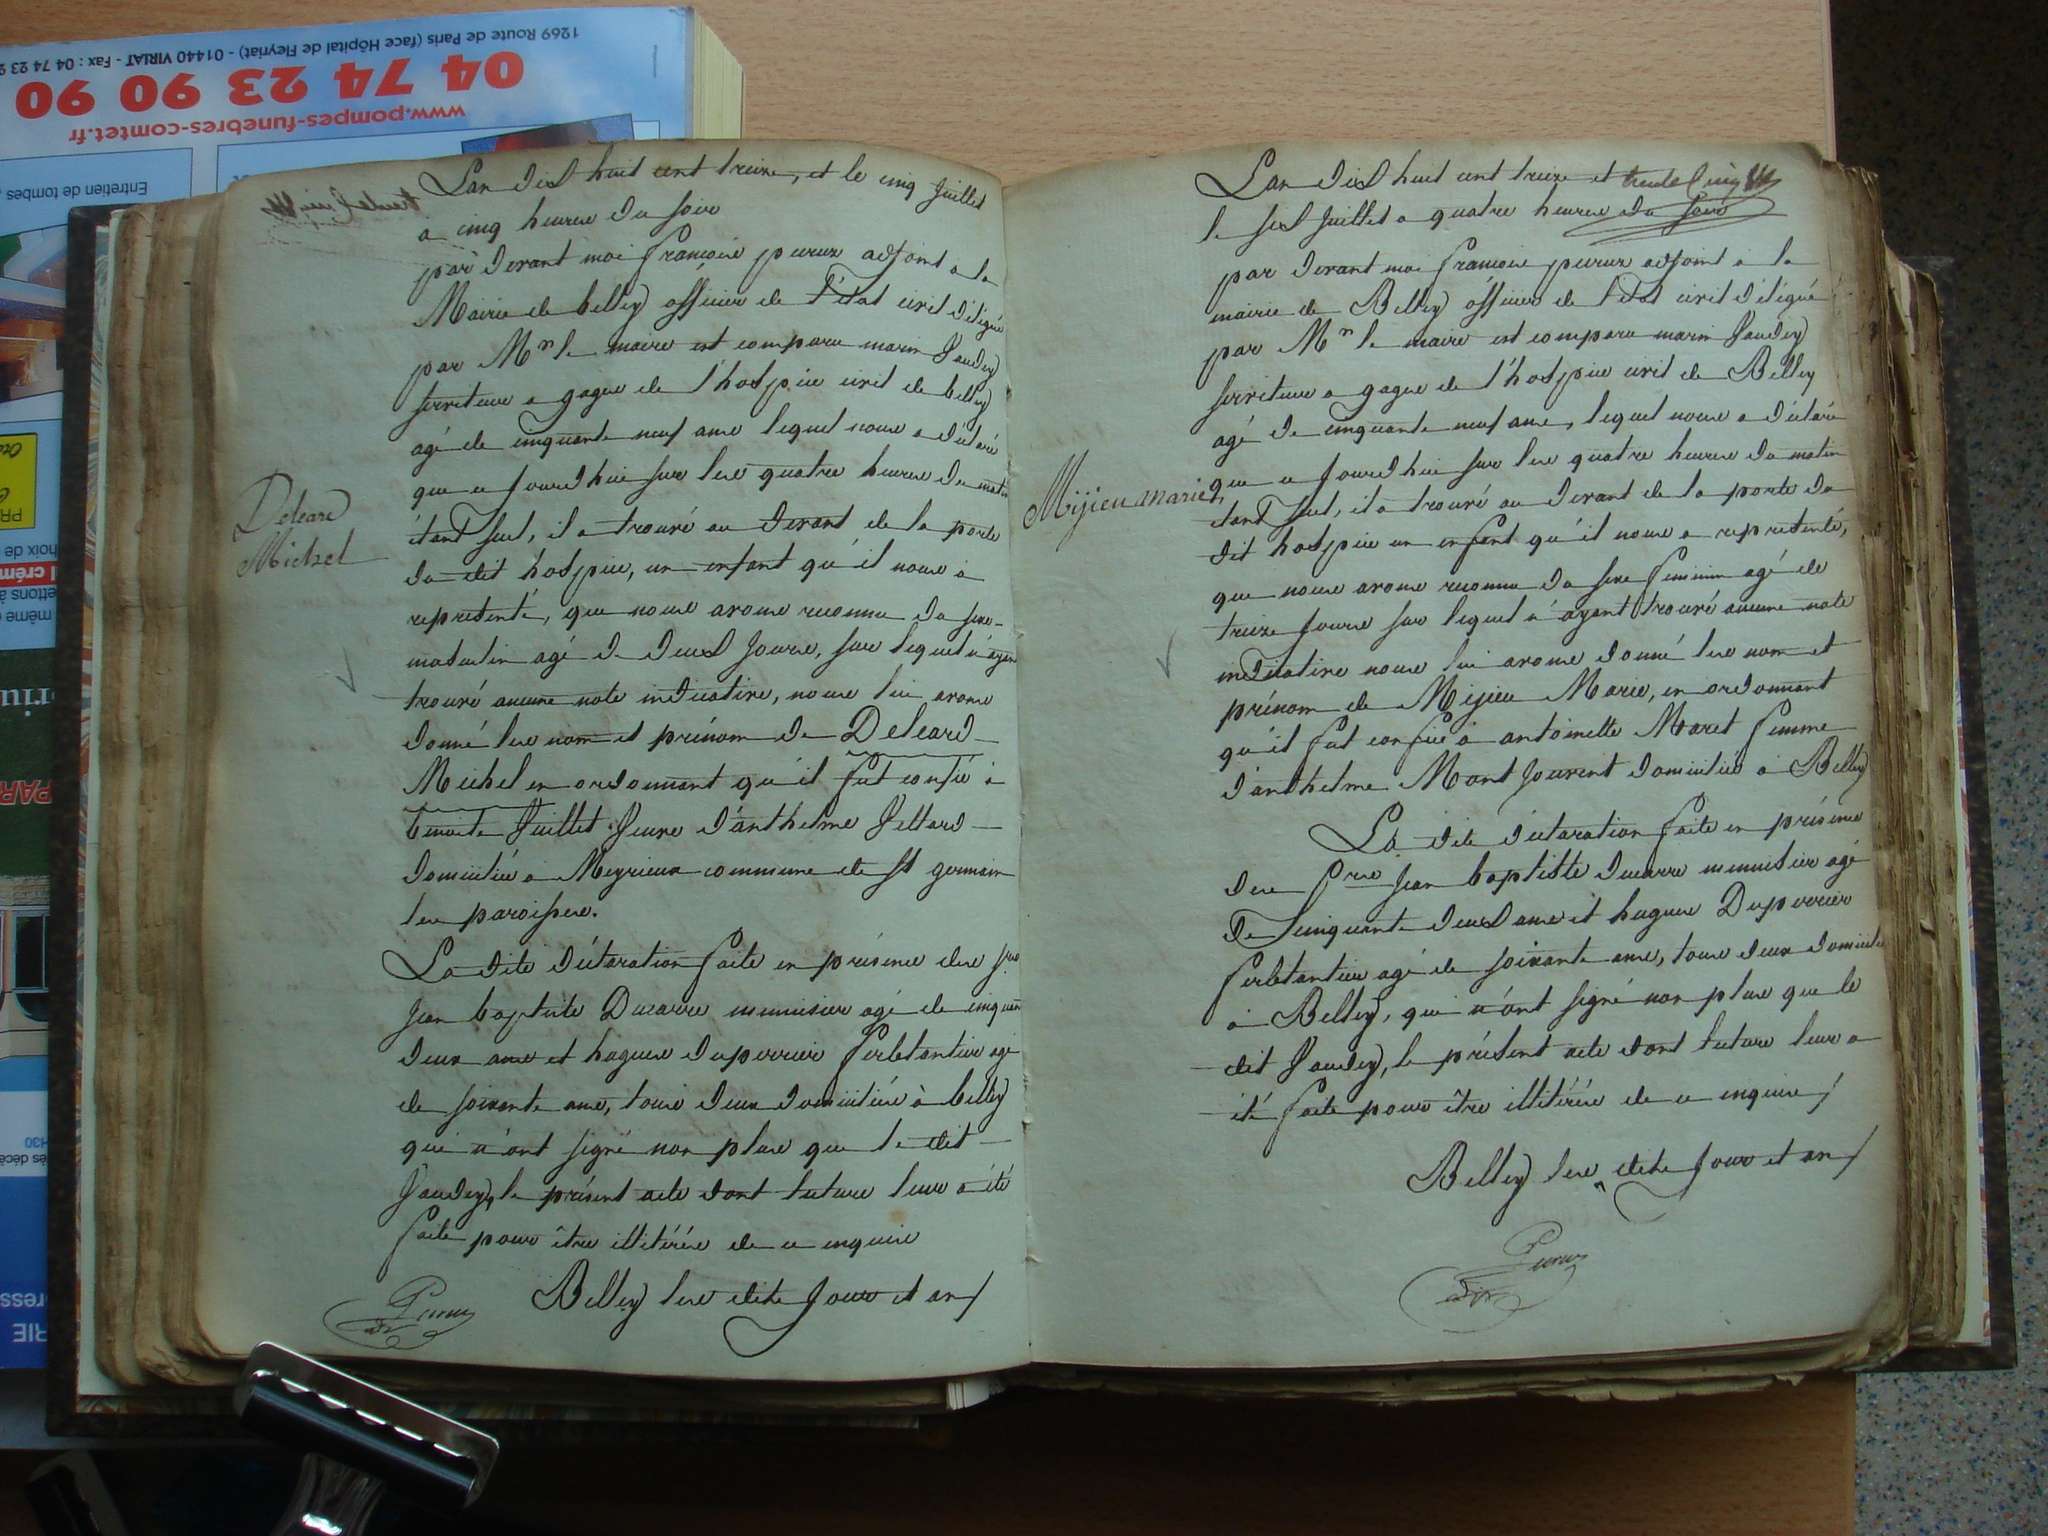 1269 Route de Paris (face Hôpital de Fleyriat) - 01440 VIRIAT - Fax : 04 74 23
04 74 23 90 90
www.pompes-funebres-comtet.fr
Entretien de tombes
L'an dixl huit cent treize, et le cinq Juillet
a cinq heures du soir
par devant moi françois adjoint a la
Mairie de belley officier de l'état civil délégué
par Mr le maire est comparu marin Vaudey
serviteur a gages de l'hospice civil de belley
agé de cinquante neuf ans lequel nous a déclaré
que ce Jourdhui sur les quatre heures du matin
étant seul, il a trouvé au devant de la porte
du dit hospice, un enfant qu'il nous a
représenté, que nous avons reconnu du sexe
masculin agé de deux Jours, sur lequel n'ayant
trouvé aucune note indicative, nous lui avons
donné les nom et prénom de Deleard
Michel en ordonnant qu'il fut confié à
benoite Juillet veuve d'anthelme
domiciliée a Meyrieux commune de st germain
les paroisses.
La dite déclaration faite en présence des srs
Jean baptiste Ducarre menuisier agé de cinquante
deux ans et hugues duperrier ferblantier agé
de soixante ans, tous deux domiciliés à belley
qui n'ont signé non plus que le dit
Vaudey, le présent acte dont lecture leur a été
faite pour être illitérés de ce enquis
Belley les dits Jour et an
Deleard
Michel
L'an dixl huit cent treize et trente cinq
le sixl Juillet a quatre heures du soir
par devant moi françois adjoint a la
mairie de Belley officier de l'état civil délégué
par Mr le maire est comparu marin Vaudey
serviteur a gages de l'hospice civil de Belley
agé de cinquante neuf ans, lequel nous a déclaré
que ce Jourdhui sur les quatre heures du matin
étant seul, il a trouvé au devant de la porte du
dit hospice un enfant qu'il nous a représenté,
que nous avons reconnu du sexe féminin agé de
treize Jours sur lequel n'ayant trouvé aucune note
indicative nous lui avons donné les nom et
prénom de Mijieu Marie, en ordonnant
qu'il fut confié à antoinette Maret femme
d'anthelme Mont Jouvent domiciliée à Belley
La dite déclaration faite en présence
des srs Jean baptiste ducarre menuisier agé
de cinquante deux ans et hugues Duperrier
ferblantier agé de soixante ans, tous deux domiciliés
à Belley, qui n'ont signé non plus que le
dit Vaudey, le présent acte dont lecture leur a
été faite pour être illitérés de ce enquis
Belley les dits Jour et an
Mijieu marie